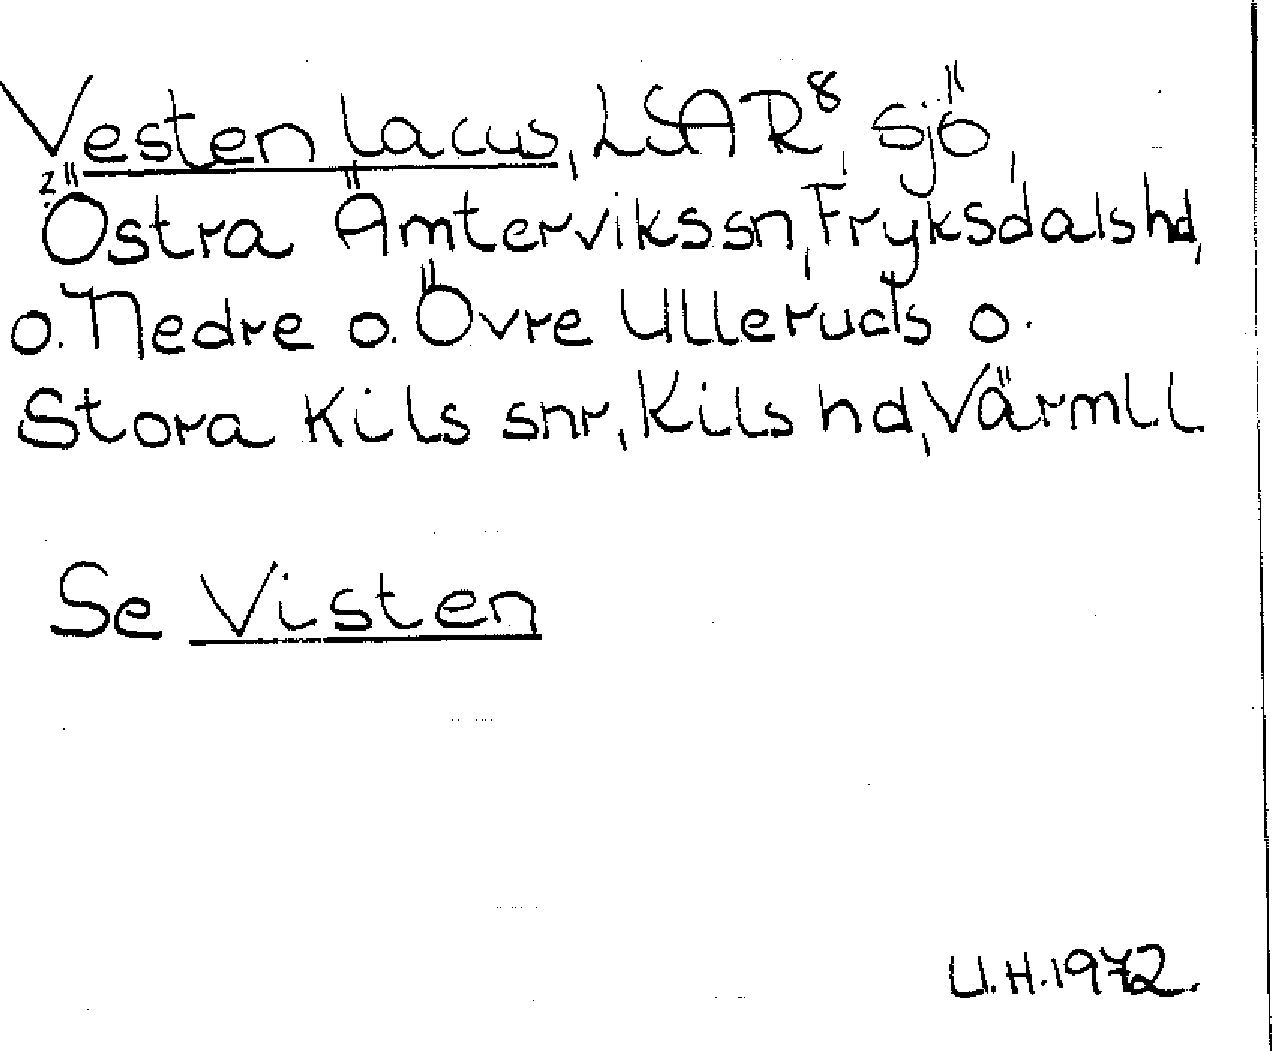 Vesten lacus, LSAR⁸, sjö,
?Östra Ämtervikssn, Fryksdalshd,
o. Nedre o. Övre Ulleruds o.
Stora Kils snr, Kils hd, Värml.l.
Se Visten
U.H. 1972.